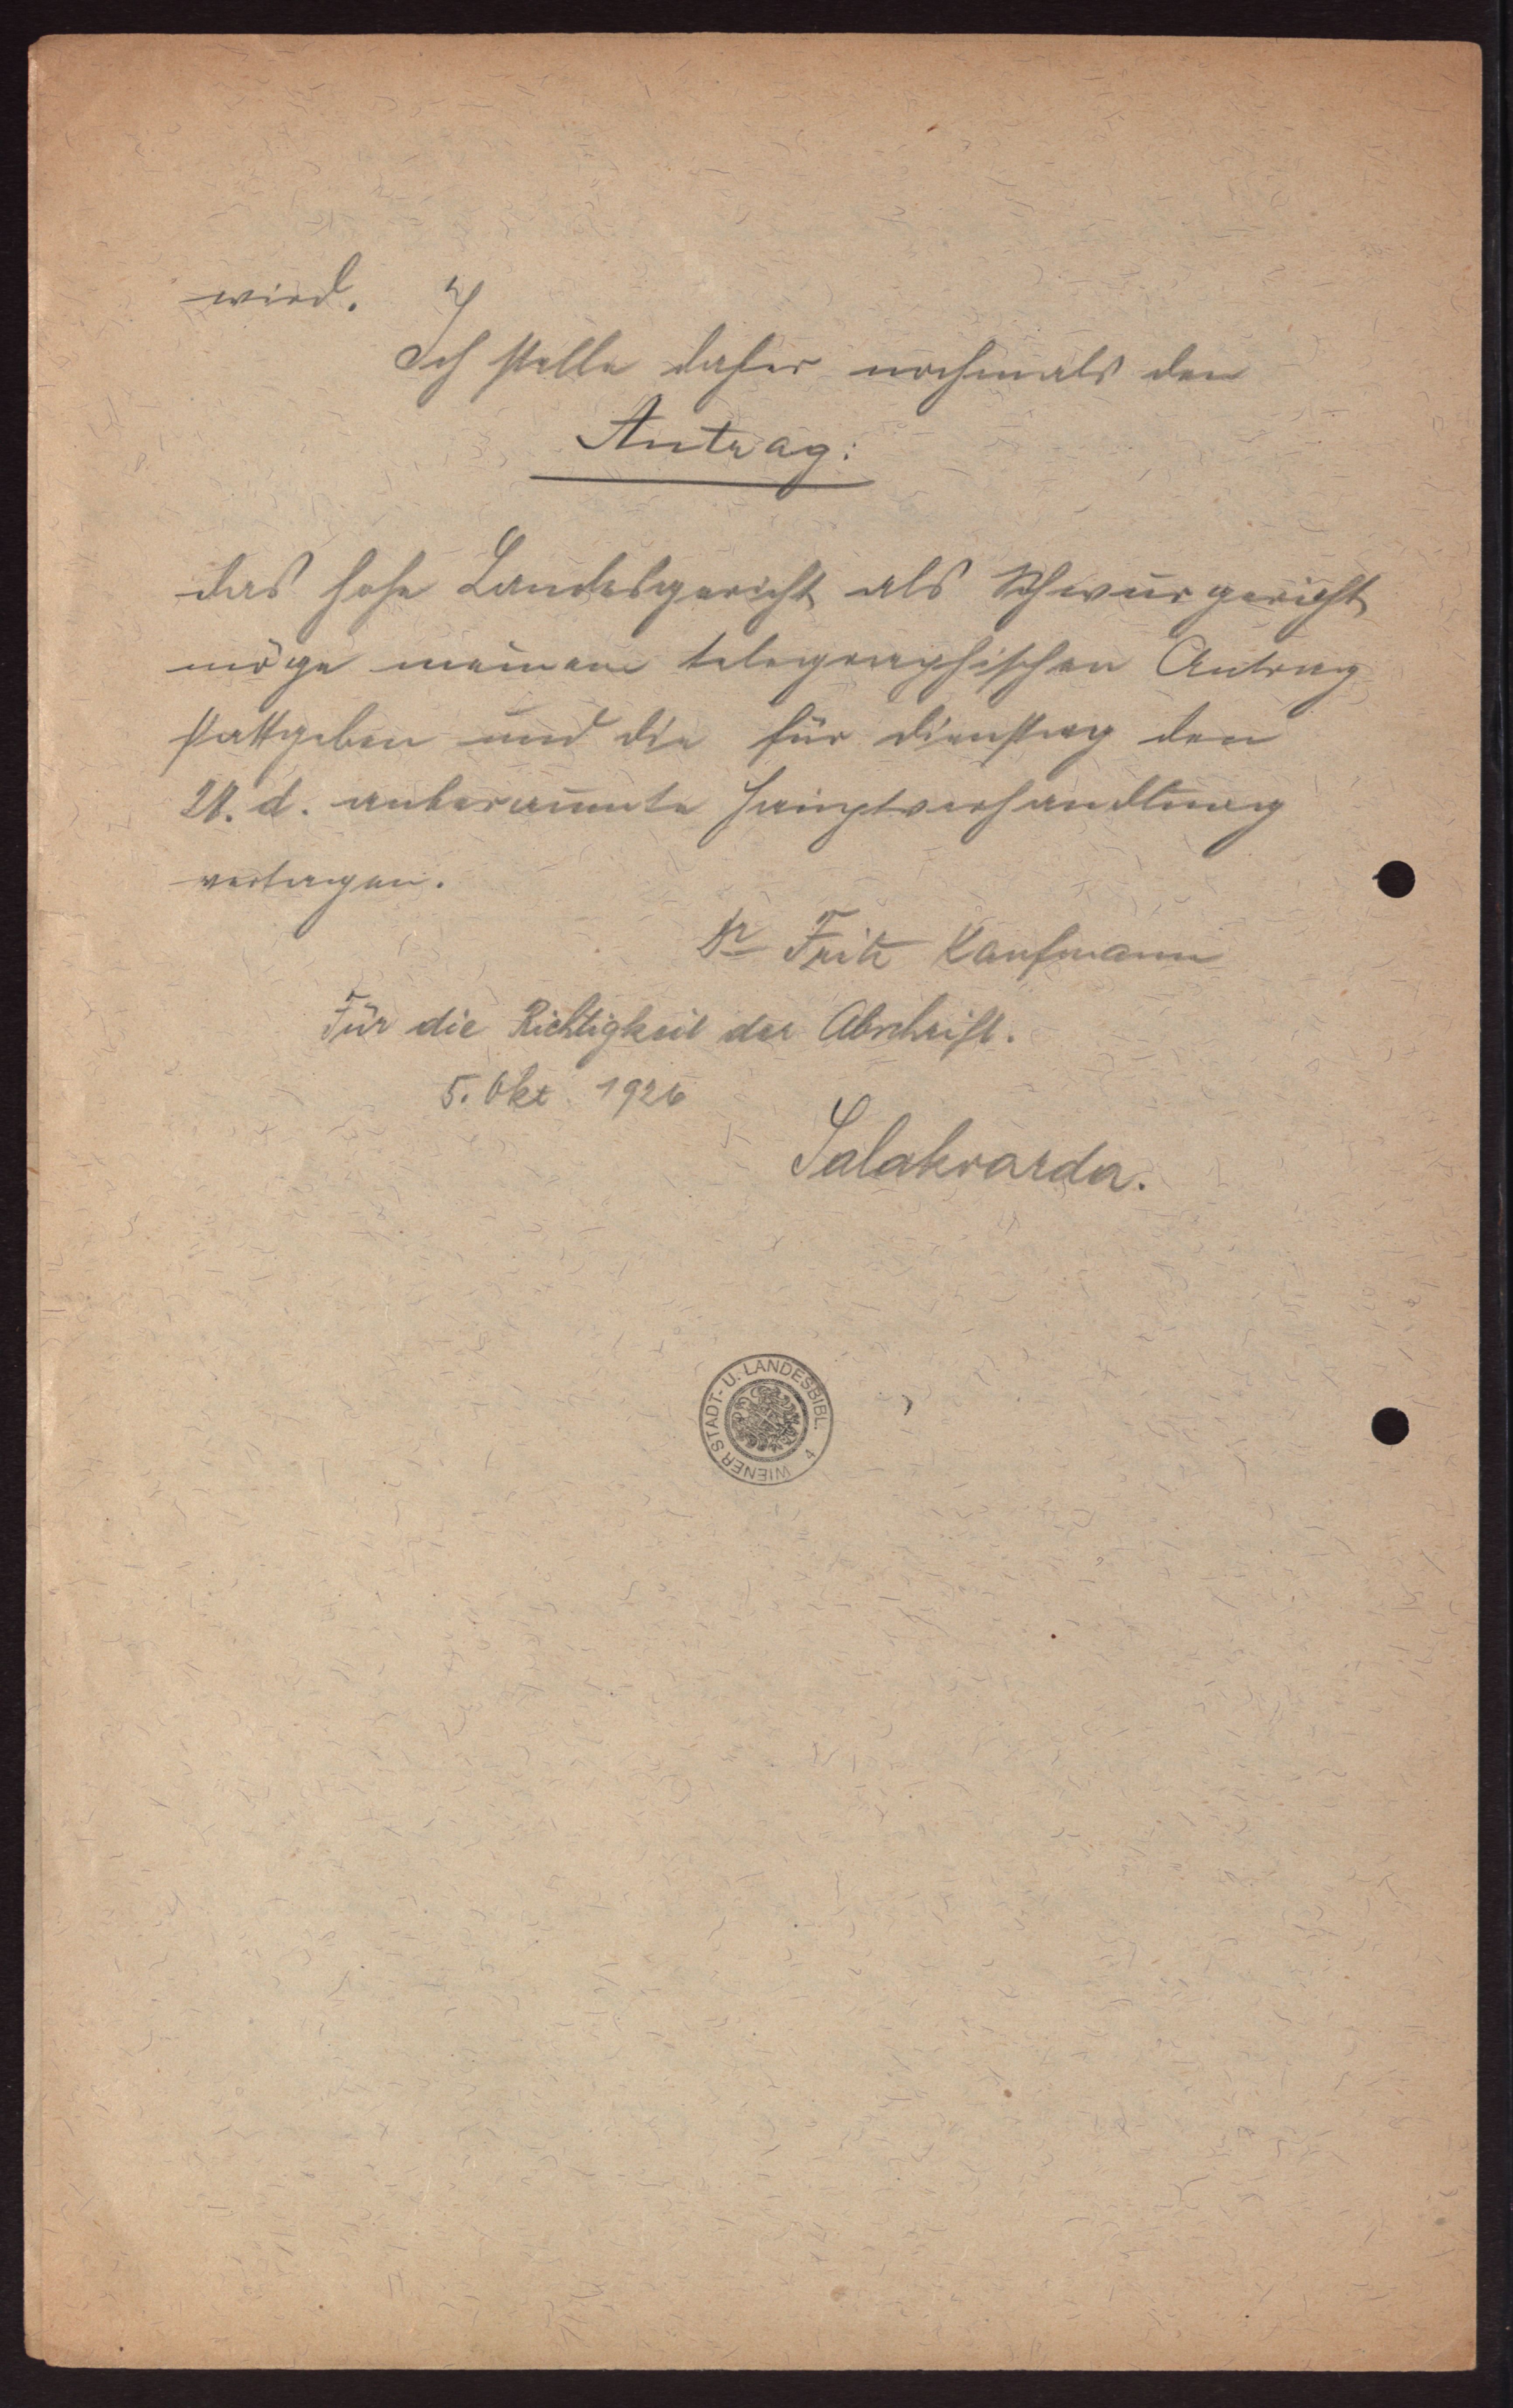 wird.
Ich stelle daher nochmals den
Antrag:
das hohe Landesgericht als Schwurgericht
möge meinem telegraphischen Antrag
stattgeben und die für Dienstag den
21. d. anberaumte Hauptverhandlung
vertagen.
Dr Fritz Kaufmann
Für die Richtigkeit der Abschrift.
5. Okt. 1926
Salakvarda.
WIENER STADT- U. LANDESBIBL. 4